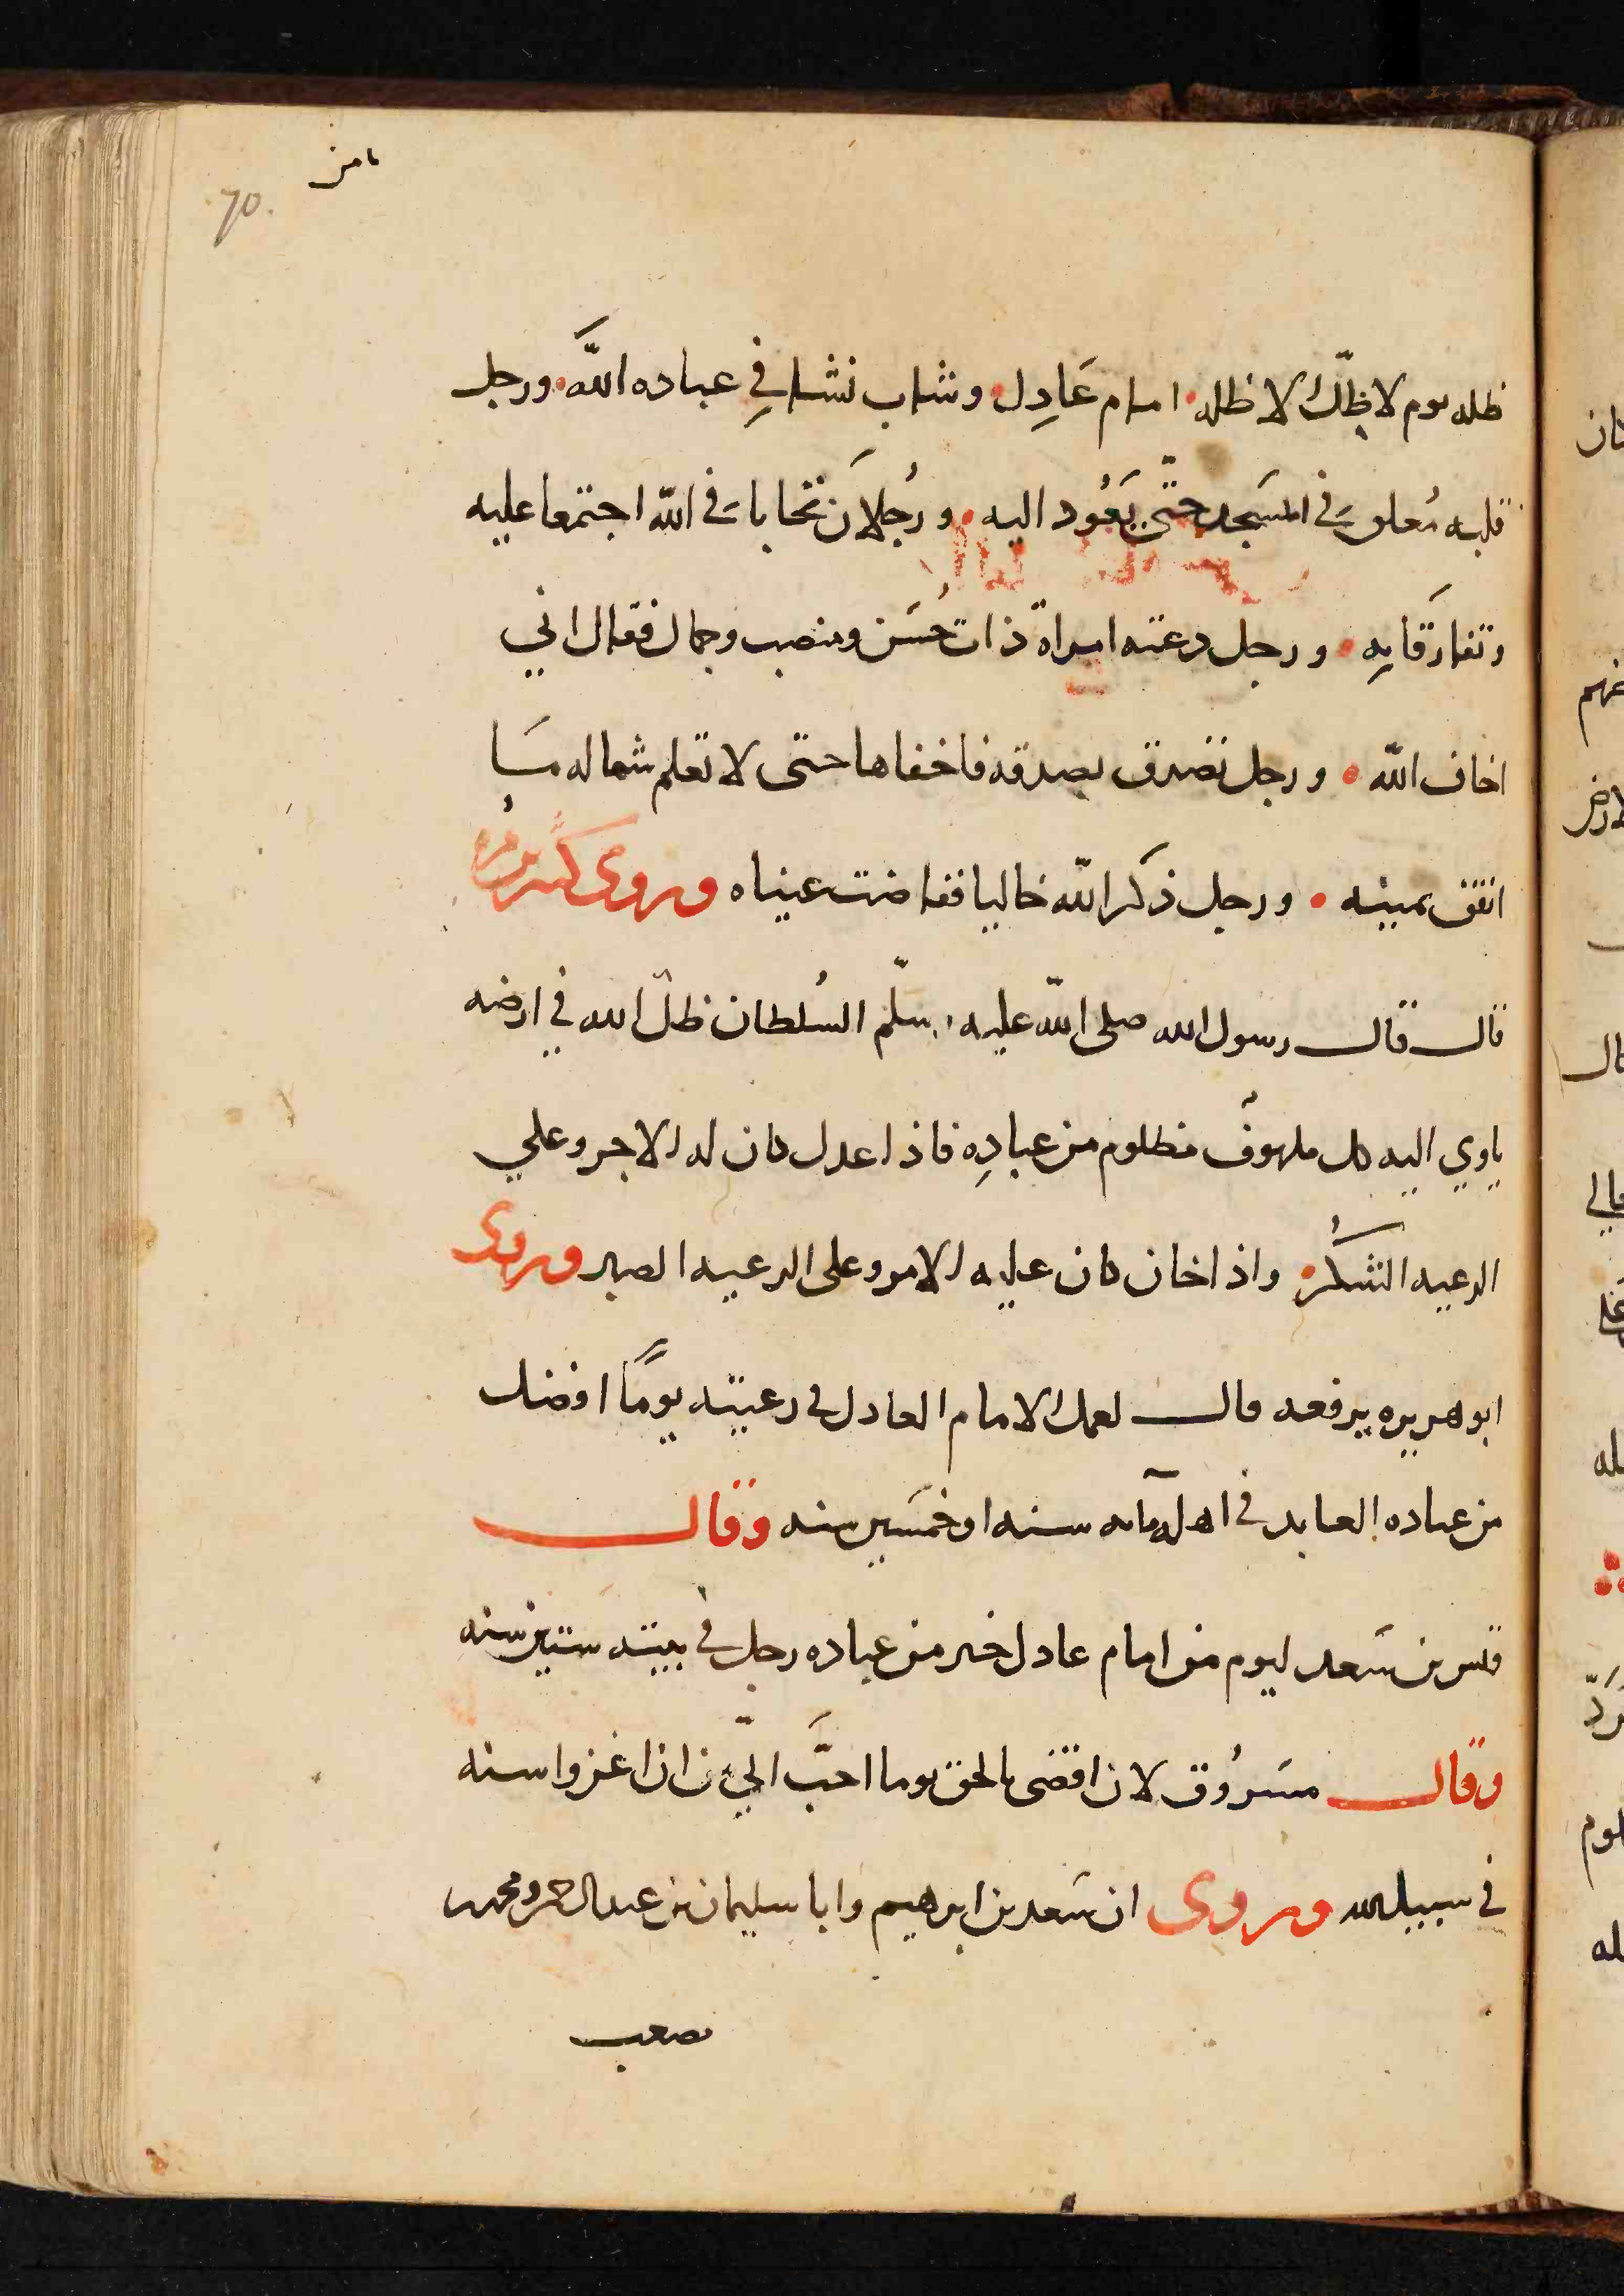 ثامن
70.
ظله يوم لا ظِلّ الا ظله امام عَادِل وشاب نشا فِي عباده اللَّه ورجل
قلبه مُعلق في المسَجد حتّى يَعُود اليه ورُجلان تحابا في الله اجتمعا عليه
وتفارَقا بِه ورجل دعته امراة ذات حُسَن ومنصب وجمال فقال اني
اخاف الله ورجل تصدق بصدقه فاخفاها حتى لا تعلم شماله مَا
انفق يمينه ورجل ذكر الله خاليا ففاضت عيناه وروى كثير بن مره
قال قال رسول الله صلى الله عليه وسلّم السُلطان ظل الله في ارضه
ياوي اليه كل ملهوف مظلوم من عبادِه فاذا عدل كان له الاجر وعلي
الرعيه الشكرُ واذا خان كان عليه الامر وعلى الرعيه الصبر وروى
ابو هريره يرفعه قال لعمل الامام العادل في رعيته يومًا افضل
من عباده العابد في اهله مايه سنه او خمسَين سنه وقال
قيس بن سَعد ليوم من امام عادل خير من عباده رجل في بيته ستين سنه
وقال مسَروُق لان اقضى بالحق يوما احبَّ اليّ من ان اغزوا سنه
في سبيل الله وروى ان سَعد بن ابرهيم وابا سليمان بن عبد الرحمن ومحمد بن
مصعب